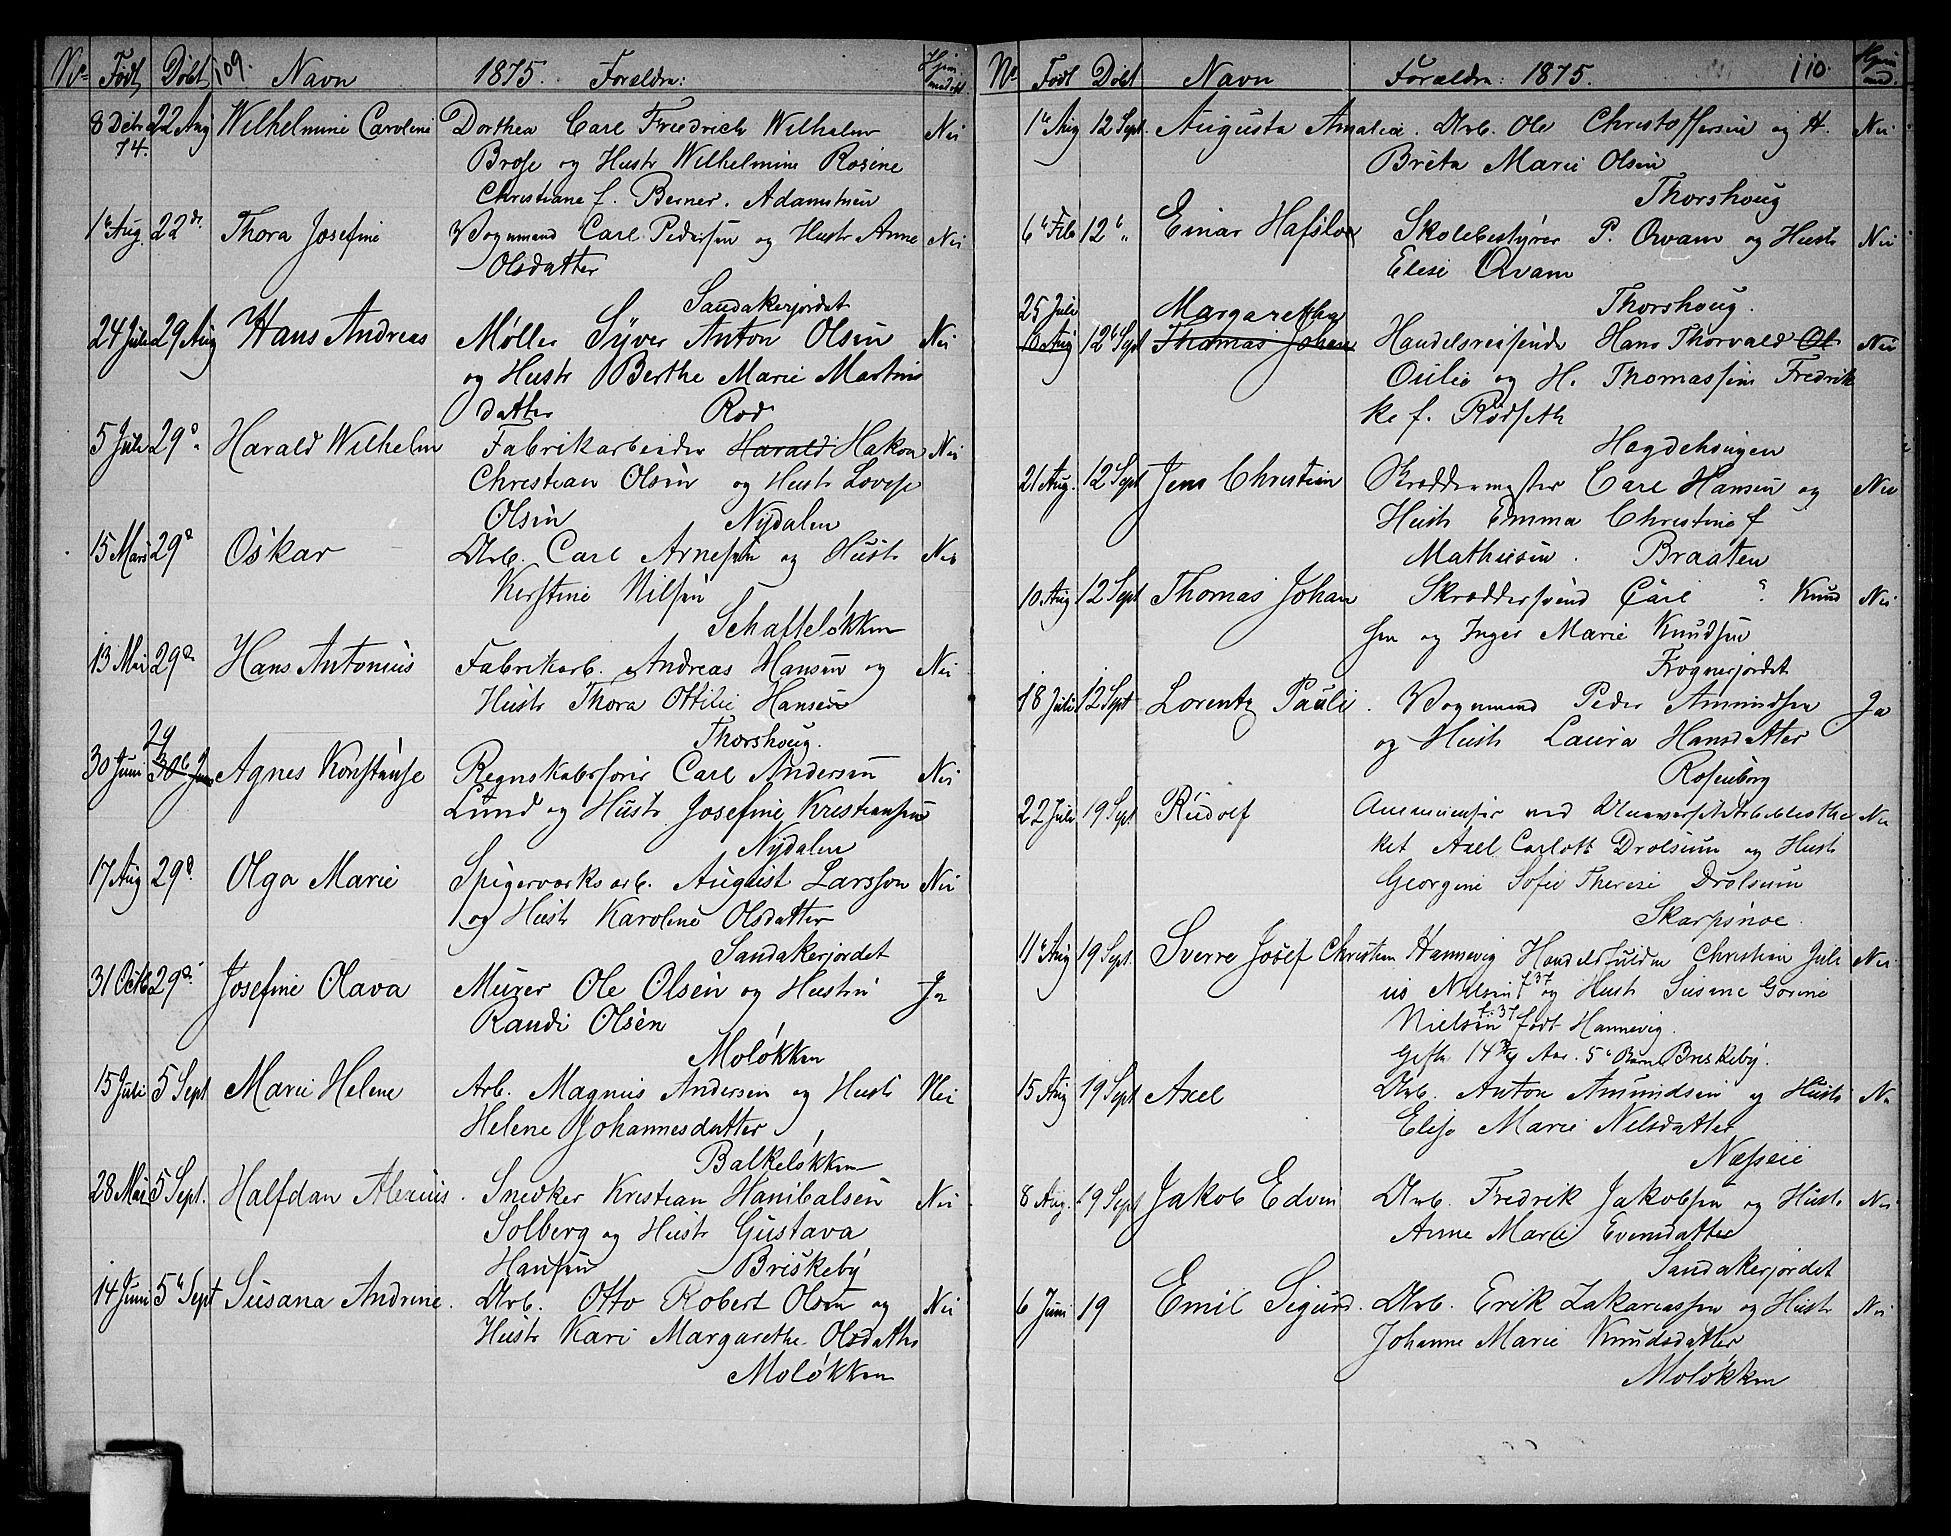 No Født Døbt 109. Navn 1875. Forældre: Hjemmedøbt
8 Dcbr 22 Aug Wilhelmine Caroline Dorthea Carl Friedrich Wilhelm Nei
74. Brose og Hustr Wilhelmine Rosine
Christiane f. Berner. Adamstuen
1 Aug. 22 do Thora Josefine Vognmand Carl Pedersen og Hustr Anne Nei
Olsdatter
Sandakerjordet
24 Juli 29 Aug Hans Andreas Møller Syver Anton Olsen Nei
og Hustr Berthe Marie Martins
datter Rod
5 Juli 29 do Harald Wilhelm Fabrikarbeider Harald Hakon Nei
Christian Olsen og Hustr Lovise
Olsen Nydalen
15 Mars 29 do Oskar Arb. Carl Arnesen og Hustr Nei
Kirstine Nilsen
Schafteløkken
13 Mai 29 do Hans Antonius Fabrikarb. Andreas Hansen og Nei
Hustr Thora Ottilie Hansen
Thorshoug.
29
30 Juni 30 Juni Agnes Konstanse Regnskabsfører Carl Andersen Nei
Lund og Hustr Josefine Kristiansen
Nydalen
17 Aug 29 do Olga Marie Spigerværksarb. August Larsson Nei
og Hustr Karoline Olsdatter
Sandakerjordet
31 Octb 29 do Josefine Olava Murer Ole Olsen og Hustru Ja
Randi Olsen
Moløkken
15 Juli 5 Sept Marie Helene Arb. Magnus Andersen og Hustr Nei
Helene Johannesdatter
Balkeløkken
28 Mai 5 Sept. Halfdan Alexius. Snedker Kristian Hanibalsen Nei
Solberg og Hustr Gustava
Hansen Briskeby
14 Juni 5 Sept Susana Andrine. Arb. Otto Robert Olsen og Nei
Hustr Kari Margarethe Olsdatter
Moløkken
No Født Døbt Navn Forældre: 1875. 110. Hjemmed.
1 Aug 12 Sept. Augusta Amalia. Arb. Ole Christoffersen og H. Nei
Brita Marie Olsen
Thorshoug
6 Feb 12 " Einar Hafslov Skolebestyrer P. Qvam og Hustr Nei
Elise Qvam
25 Juli Margaretha Thorshoug.
10 Aug 12 Sept Thomas Johan Handelsreisende Hans Thorvald Ol Nei
Oulie og H. Thomassine Fredrik
ke f. Rødseth
Hegdehougen
21 Aug. 12 Sept Jens Christian Skræddermester Carl Hansen og Nei
Hustr Emma Christine f
Mathisen. Braaten
10 Aug 12 Sept Thomas Johan Skræddersvend Carl Knud Nei
sen og Inger Marie Knudsen
Frognerjordet
18 Juli 12 Sept Lorentz Pauli. Vognmand Peder Amundsen Ja
og Hustr Laura Hansdatter
Rosenborg
22 Juli 19 Sept Rudolf Amanuensis ved Universitetsbibliothe Nei
ket Axel Carlott Drolsum og Hustr
Georgine Sofie Therese Drolsum
Skarpsnoe.
11 Aug 19 Sept. Sverre Josef Christian Hannevig Handelsfuldm Christian Juli Nei
us Nilsen f 37 og Hustr Susane Gorine
Nielsen f. 37 født Hannevig.
Gifte 14 Aar. 5 Barn Briskeby.
15 Aug 19 Sept Axel Arb. Anton Amundsen og Hustr Nei
Elise Marie Nilsdatter
Næsseie
8 Aug. 19 Sept Jakob Edvin Arb. Fredrik Jakobsen og Hustr Nei
Anne Marie Evensdatter
Sandakerjordet
6 Juni 19 Emil Sigurd. Arb. Erik Zakariassen og Hustr Nei
Johanne Marie Knudsdatter
Moløkken